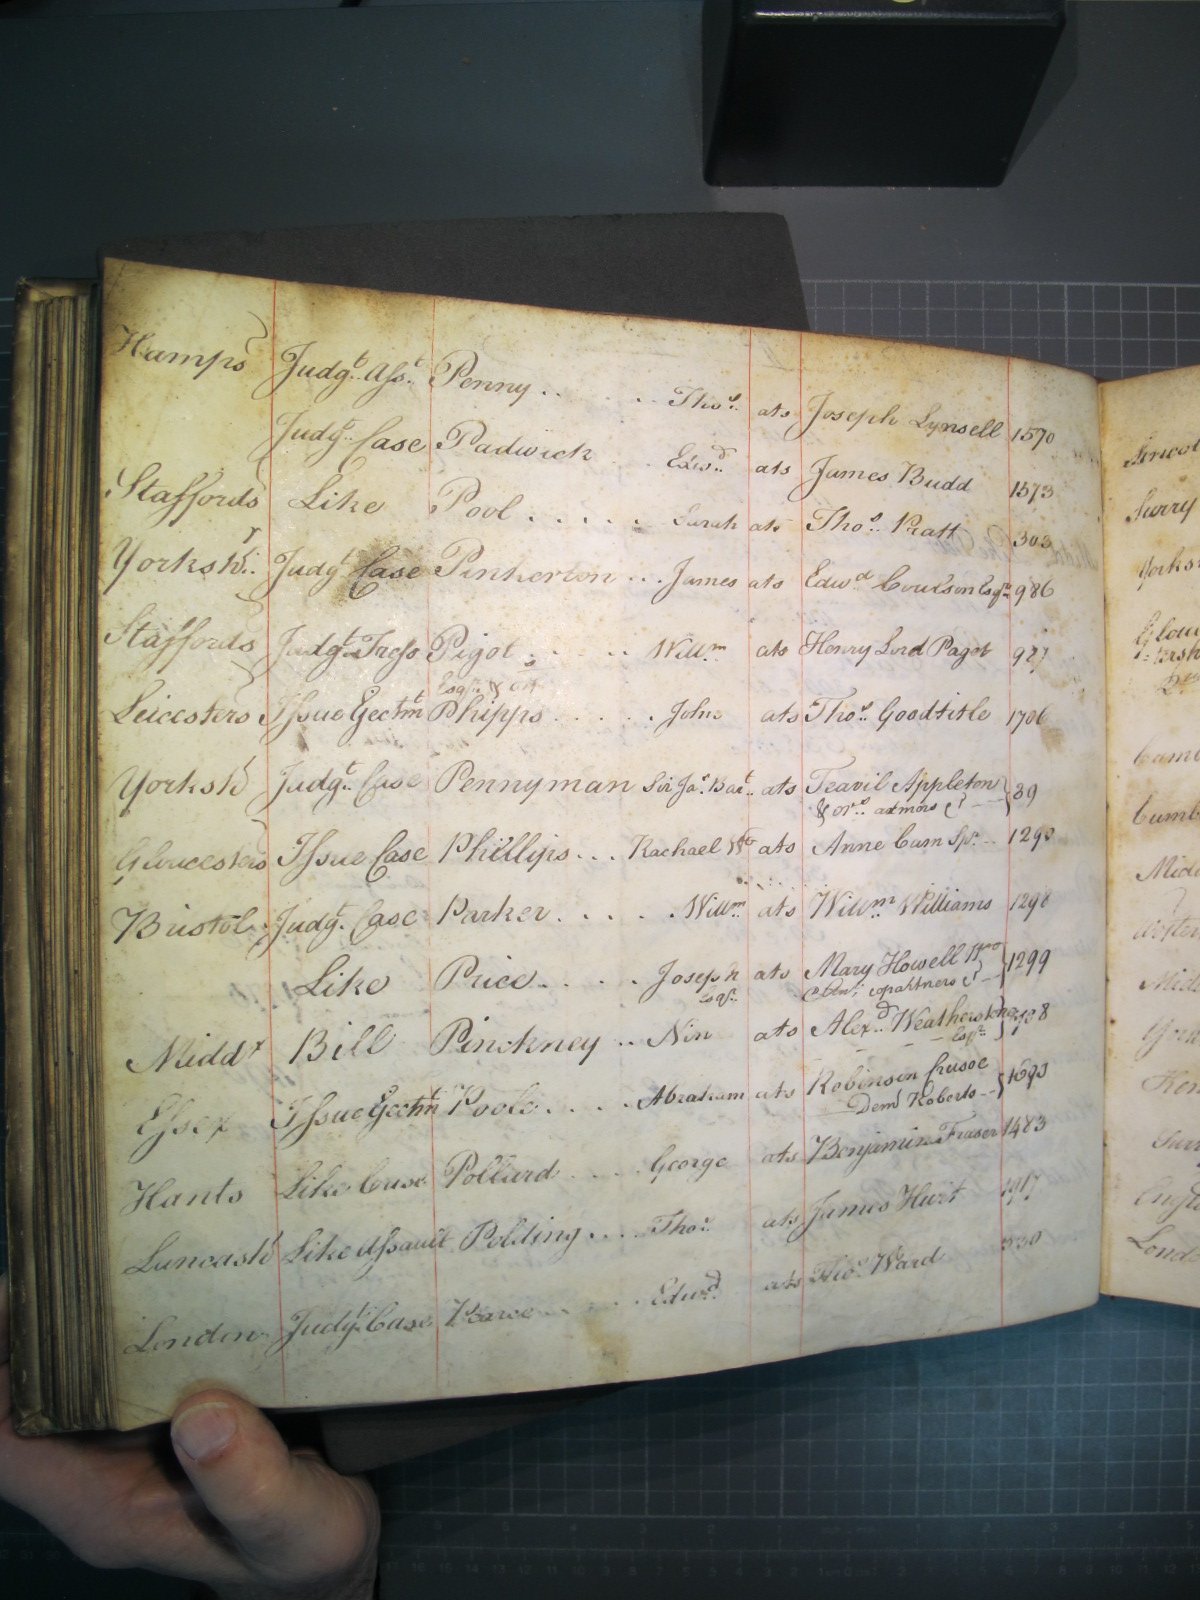 Hamps Judgt. Asst. Penny . . . . . Thos. ats Joseph Lynsell 1570
Judgt. Case Padwick . . Edwd. ats James Budd 1573
Staffords Like Pool . . . . . Sarah ats Thos. Pratt 303
Yorkshr. Judgt Case Pinkerton . . . James ats Edwd Coulson Esqr. 986
Staffords Judgt. Tress Pigot . . . . . Willm. ats Henry Lord Paget 927
Esqr. & ors
Leicesters Issue Ejectmt Phipps . . . . . John ats Thos. Goodtitle 1706
Yorksh Judgt. Case Pennyman Sir Jas. Bart. ats Teavil Appleton 89
& ors.
Gloucesters Issue Case Phillips . . . Rachael Wo ats Anne Cam Spr. 1290
Bristol Judgt. Case Parker . . . . . Willm. ats Willm. Williams 1298
Like Price . . . . Joseph ats Mary Howell Wo 1299
Esqr. copartners
Middx Bill Pinckney . . Nin ats Alexd.
Esqr.
Essex Issue Ejectmt Poole . . . . Abraham ats Robinson Crusoe 1693
Dem Roberts
Hants Like Case Pollard . . . George ats Benjamin Fraser 1483
Lancash Like Assault Polding . . . . Thos. ats James Hurt
London Judgt. Case Pearce . . . . Edwd. ats Thos. Ward
Surry